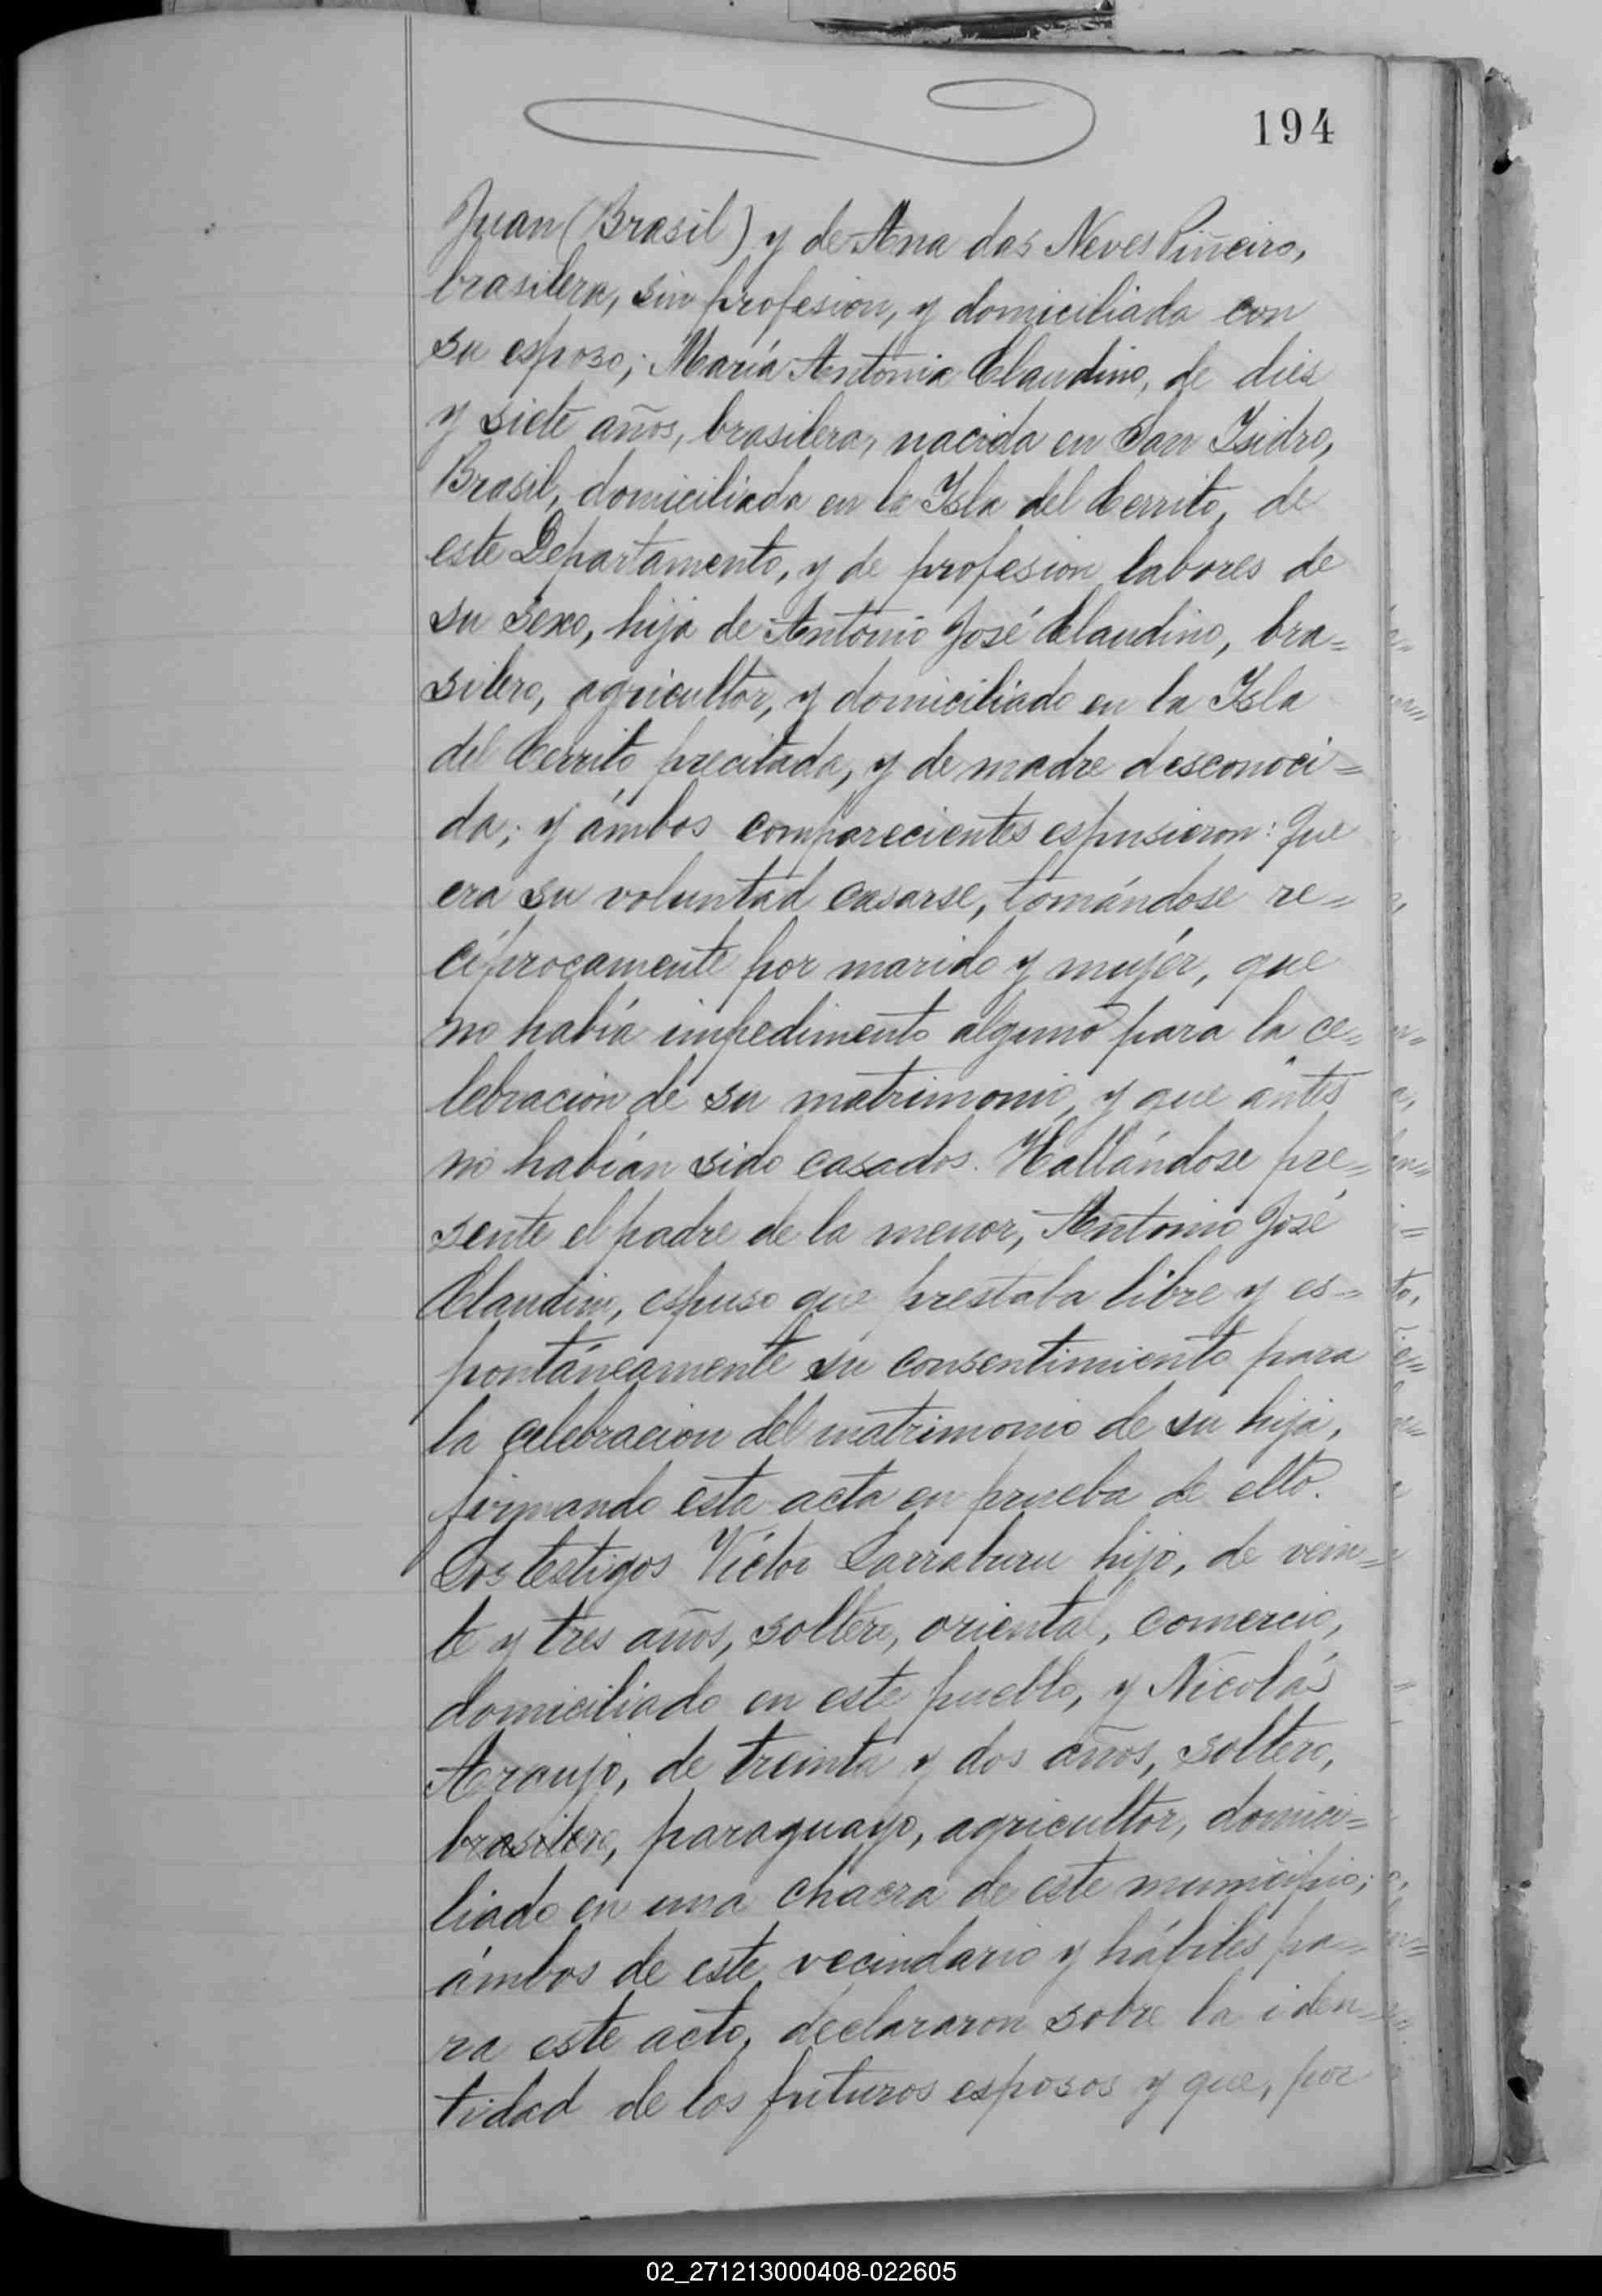 194
Juan (Brasil) y de Ana das Neves Piñeiro,
brasilera, sin profesion, y domiciliada con
su esposo; María Antonia Claudino, de dies
y siete años, brasilera, nacida en San Isidro,
Brasil, domiciliada en la Isla del Cerrito, de
este Departamento, y de profesion labores de
su sexo, hija de Antonio José Claudino, bra=
silero, agricultor, y domiciliado en la Isla
del Cerrito precitada, y de madre desconoci=
da; y ámbos comparecientes espusieron: Que
era su voluntad casarse, tomándose re=
cíprocamente por marido y mujér, que
no había impedimento alguno para la ce=
lebracion de su matrimonio, y que ántes
no habían sido casados. Hallándose pre=
sente el padre de la menor, Antonio José
Claudino, espuso que prestaba libre y es=
pontáneamente su consentimiento para
la celebracion del matrimonio de su hija,
firmando esta acta en prueba de ello.
Los testigos Víctor Larraburu hijo, de vein=
te y tres años, soltero, oriental, comercio,
domiciliado en este pueblo, y Nicolás
Araujo, de treinta y dos años, soltero,
brasilero, paraguayo, agricultor, domici=
liado en una chacra de este municipio;
ámbos de este vecindario y hábiles pa=
ra este acto, declararon sobre la iden=
tidad de los futuros esposos y que, por
02_271213000408-022605